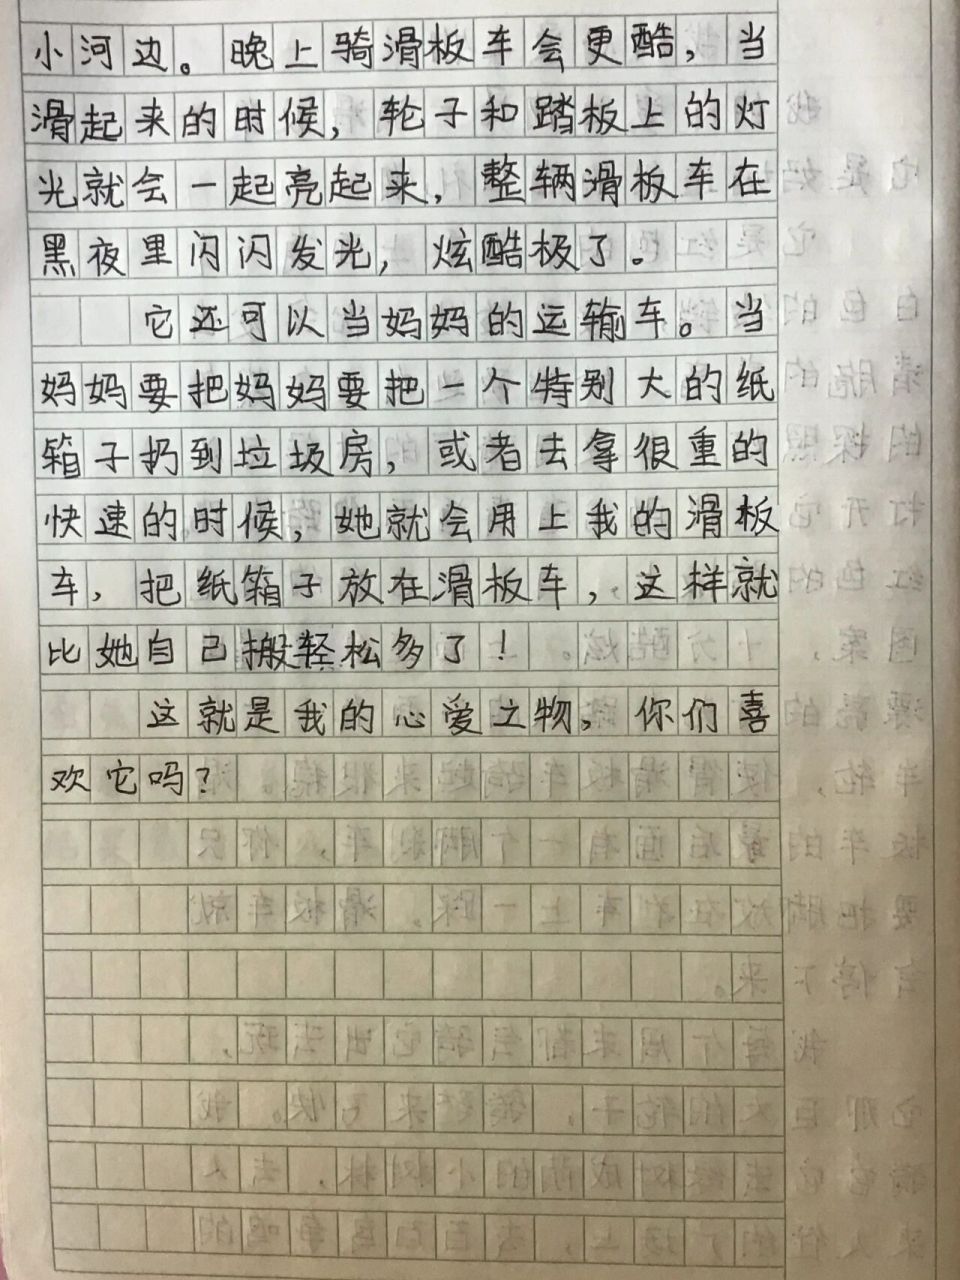 小河边。晚上骑滑板车会更酷，当
滑起来的时候，轮子和踏板上的灯
光就会一起亮起来，整辆滑板车在
黑夜里闪闪发光，炫酷极了。
它还可以当妈妈的运输车。当
妈妈要把妈妈要把一个特别大的纸
箱子扔到垃圾房，或者去拿很重的
快速的时候，她就会用上我的滑板
车，把纸箱子放在滑板车，这样就
比她自己搬轻松多了！
这就是我的心爱之物，你们喜
欢它吗？